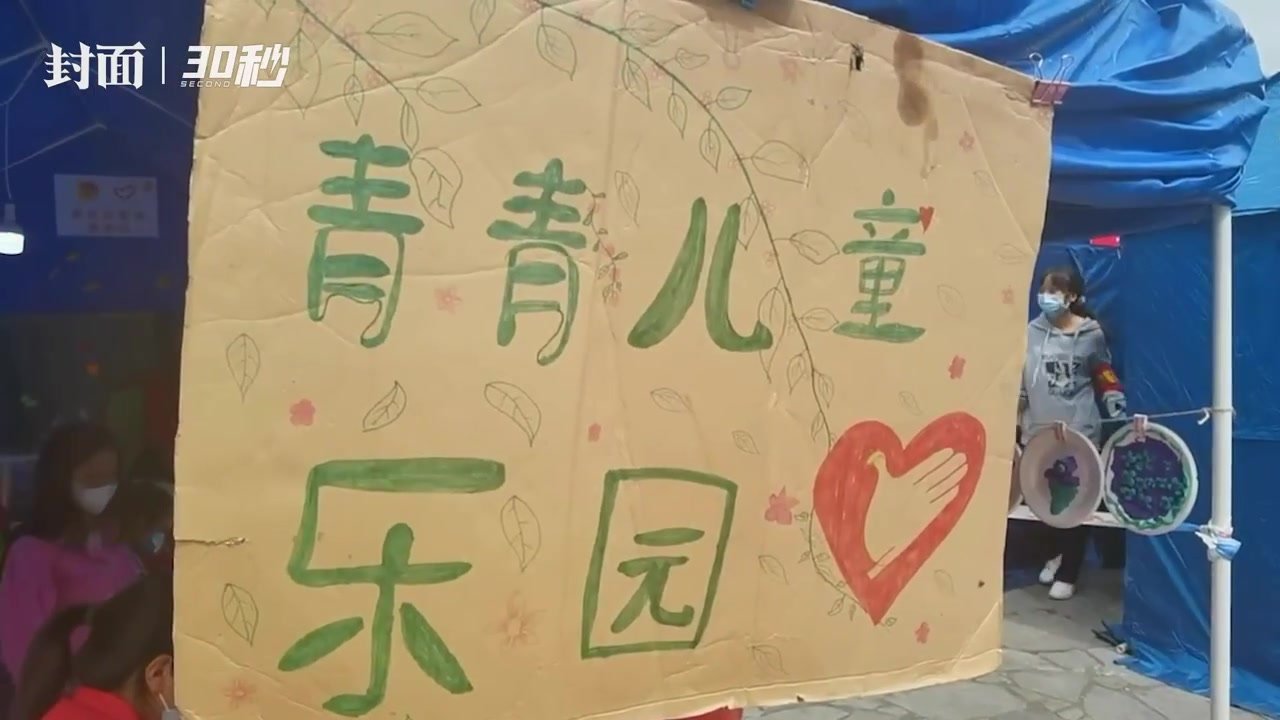 封面 30秒
SECOND
青青儿童
乐园